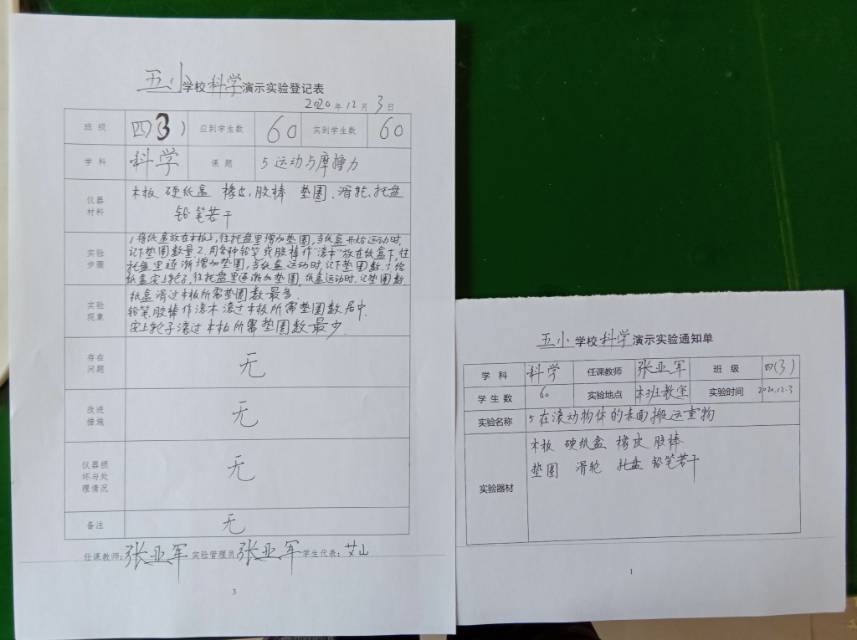 五小学校科学演示实验登记表
2020年12月3日
班级 四(3) 应到学生数 60 实到学生数 60
学科 科学 课题 5运动与摩擦力
仪器材料 木板 硬纸盒 橡皮、胶棒 垫圈、滑轮、托盘
铅笔若干
实验步骤 1将纸盒放在木板上,往托盘里增加垫圈,当纸盒开始运动时,
记下垫圈数量2.用各种铅笔或胶棒作"滚木"放在纸盒下,往
托盘里逐渐增加垫圈,当纸盒运动时,记下垫圈数.3给
纸盒安上轮子,往托盘里逐渐加垫圈,纸盒运动时,记垫圈数
实验现象 纸盒滑过木板所需垫圈数最多.
铅笔胶棒作滚木滚过木板所需垫圈数居中.
安上轮子滚过木板所需垫圈数最少.
存在问题 无
改进措施 无
仪器损坏与处理情况 无
备注 无
任课教师:张亚军 实验管理员 张亚军 学生代表:艾山
3
五小学校科学演示实验通知单
学科 科学 任课教师 张亚军 班级 四(3)
学生数 60 实验地点 本班教室 实验时间 2020.12.3
实验名称 5在滚动物体的表面搬运重物
实验器材 木板 硬纸盒 橡皮 胶棒
垫圈 滑轮 托盘 铅笔若干
1